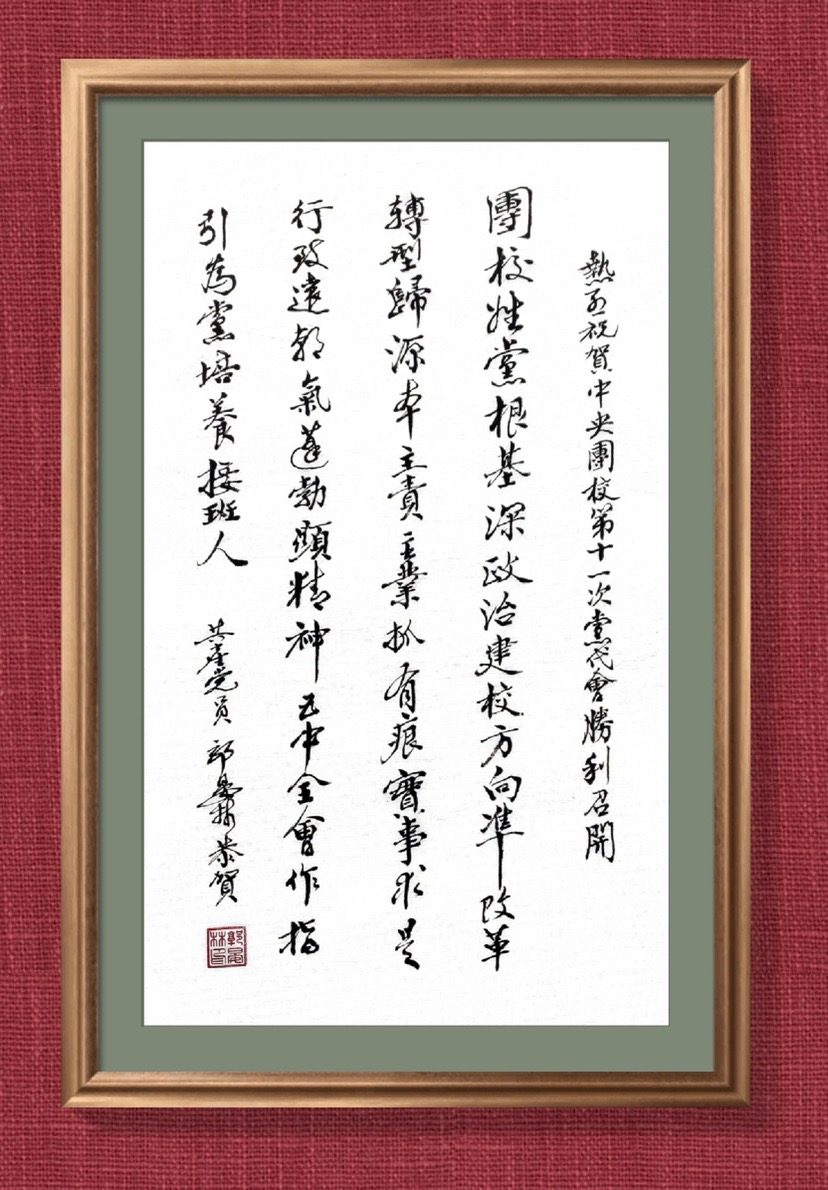 熱烈祝賀中央團校第十一次黨代會勝利召開
團校姓黨根基深政治建校方向準改革
轉型歸源本主責主業抓有痕實事求是
行致遠朝氣蓬勃顯精神五中全會作指
引為黨培養接班人
共產党員 郭恭賀